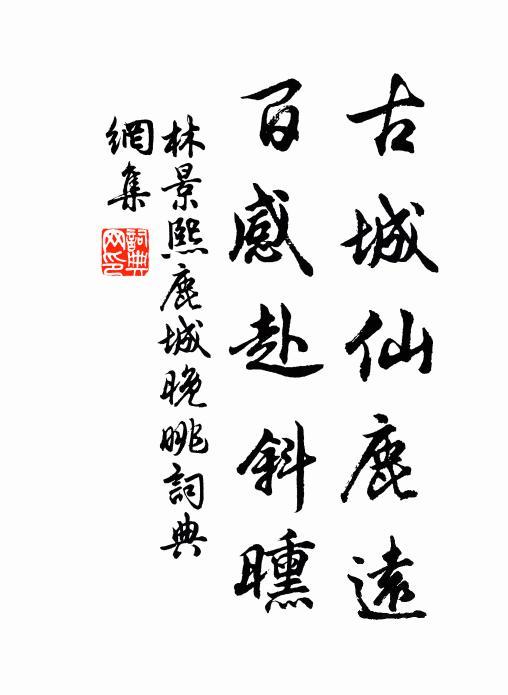 古城仙鹿遠
百感赴斜曛
林景熙鹿城晚眺詞典
網集
詞典網印